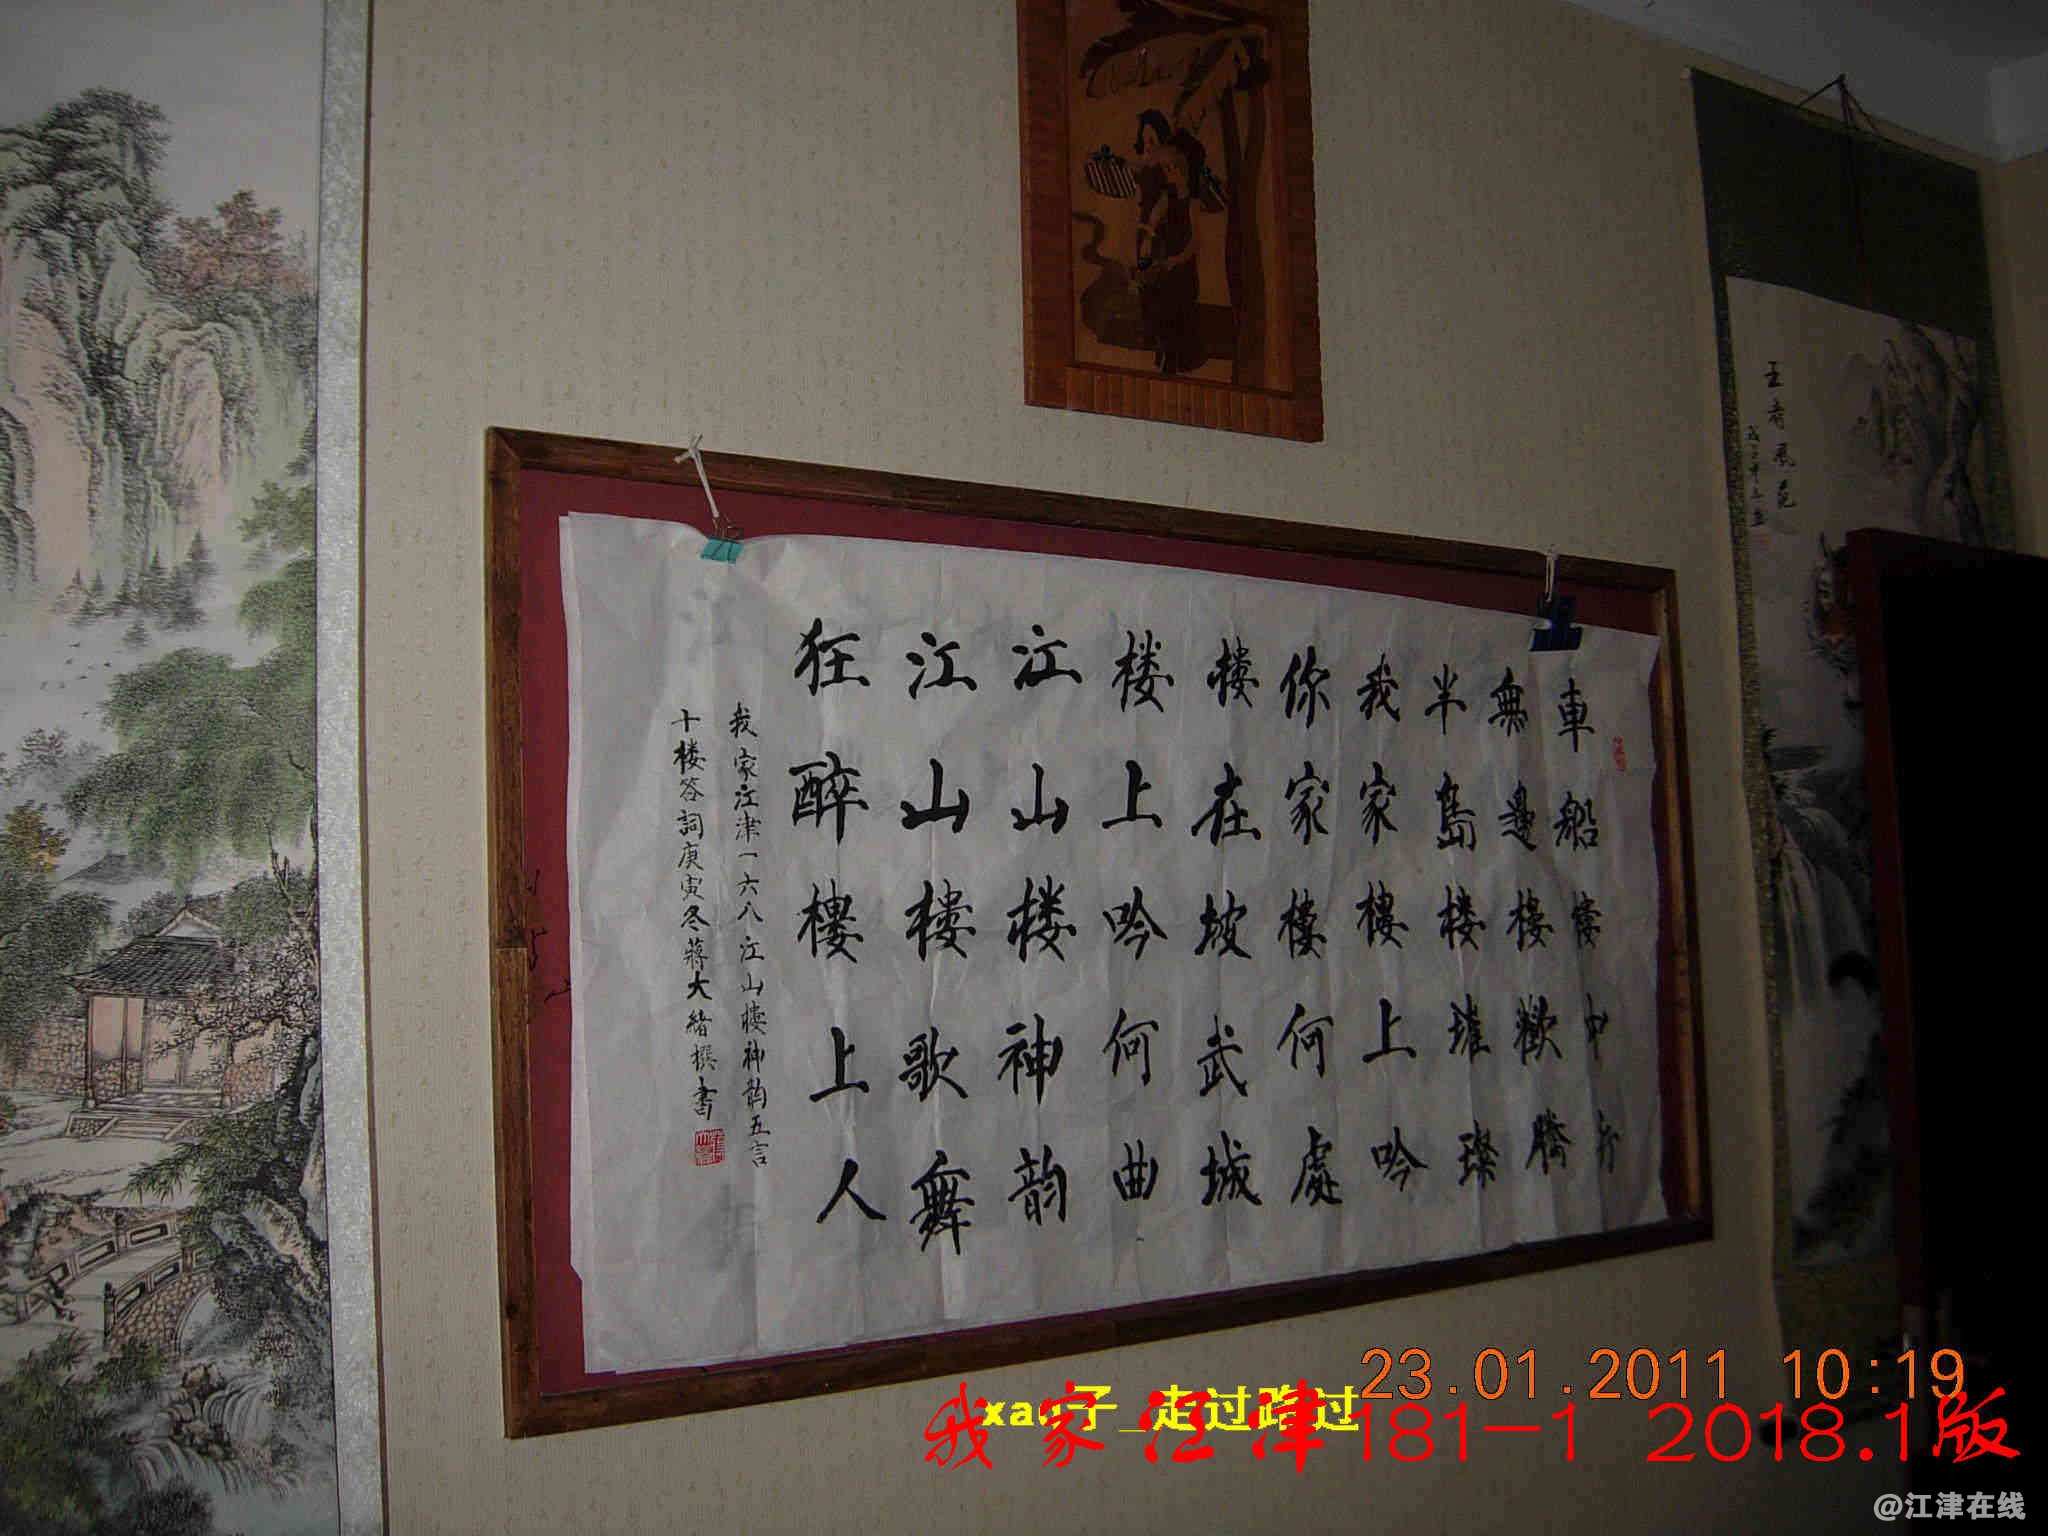 車船楼中行
無邊樓歡騰
半島楼璀璨
我家樓上吟
你家樓何處
樓在坡武城
楼上吟何曲
江山楼神韵
江山樓歌舞
狂醉樓上人
我家江津一六八江山楼神韵五言
十楼答詞庚寅冬蔣大緒撰書
王者風范
23.01.2011 10:19
xao子_走过路过
我家江津181-1 2018.1版
@江津在线